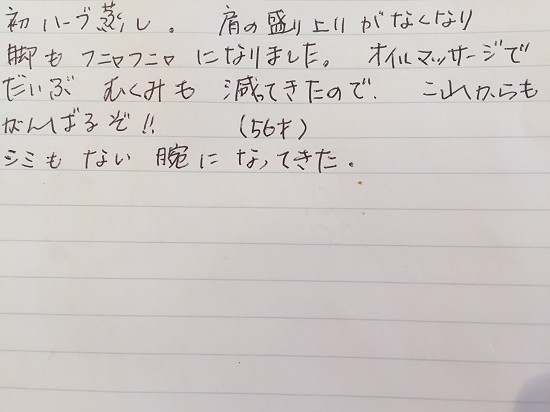 初ハーブ蒸し。 肩の盛り上りがなくなり
脚もフニャフニャになりました。 オイルマッサージで
だいぶ むくみも 減ってきたので、 これからも
がんばるぞ!! (56才)
シミも ない 腕に なってきた。